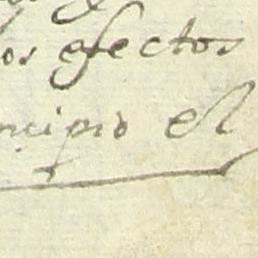 os efectos
ncipio el